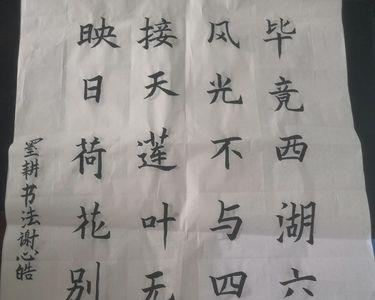 毕竟西湖六
风光不与四
接天莲叶无
映日荷花别
墨耕书法谢心皓